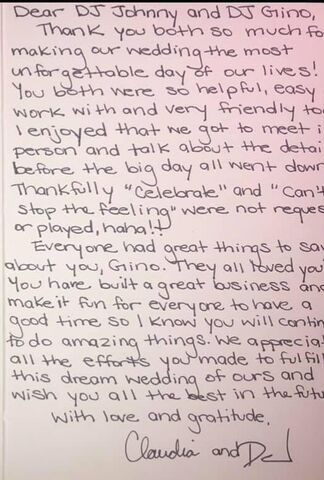 Dear DJ Johnny and DJ Gino,
Thank you both so much fo
making our wedding the most
unforgettable day of our lives!
You both were so helpful, easy
work with and very friendly too
I enjoyed that we got to meet i
person and talk about the detai
before the big day all went down
Thankfully "Celebrate" and "Can't
stop the feeling" were not reques
or played, haha!!
Everyone had great things to say
about you, Gino. They all loved you
You have built a great business and
make it fun for everyone to have a
good time so I know you will contin
to do amazing things. We apprecia
all the efforts you made to fulfill
this dream wedding of ours and
wish you all the best in the futu
With love and gratitude,
Claudia and